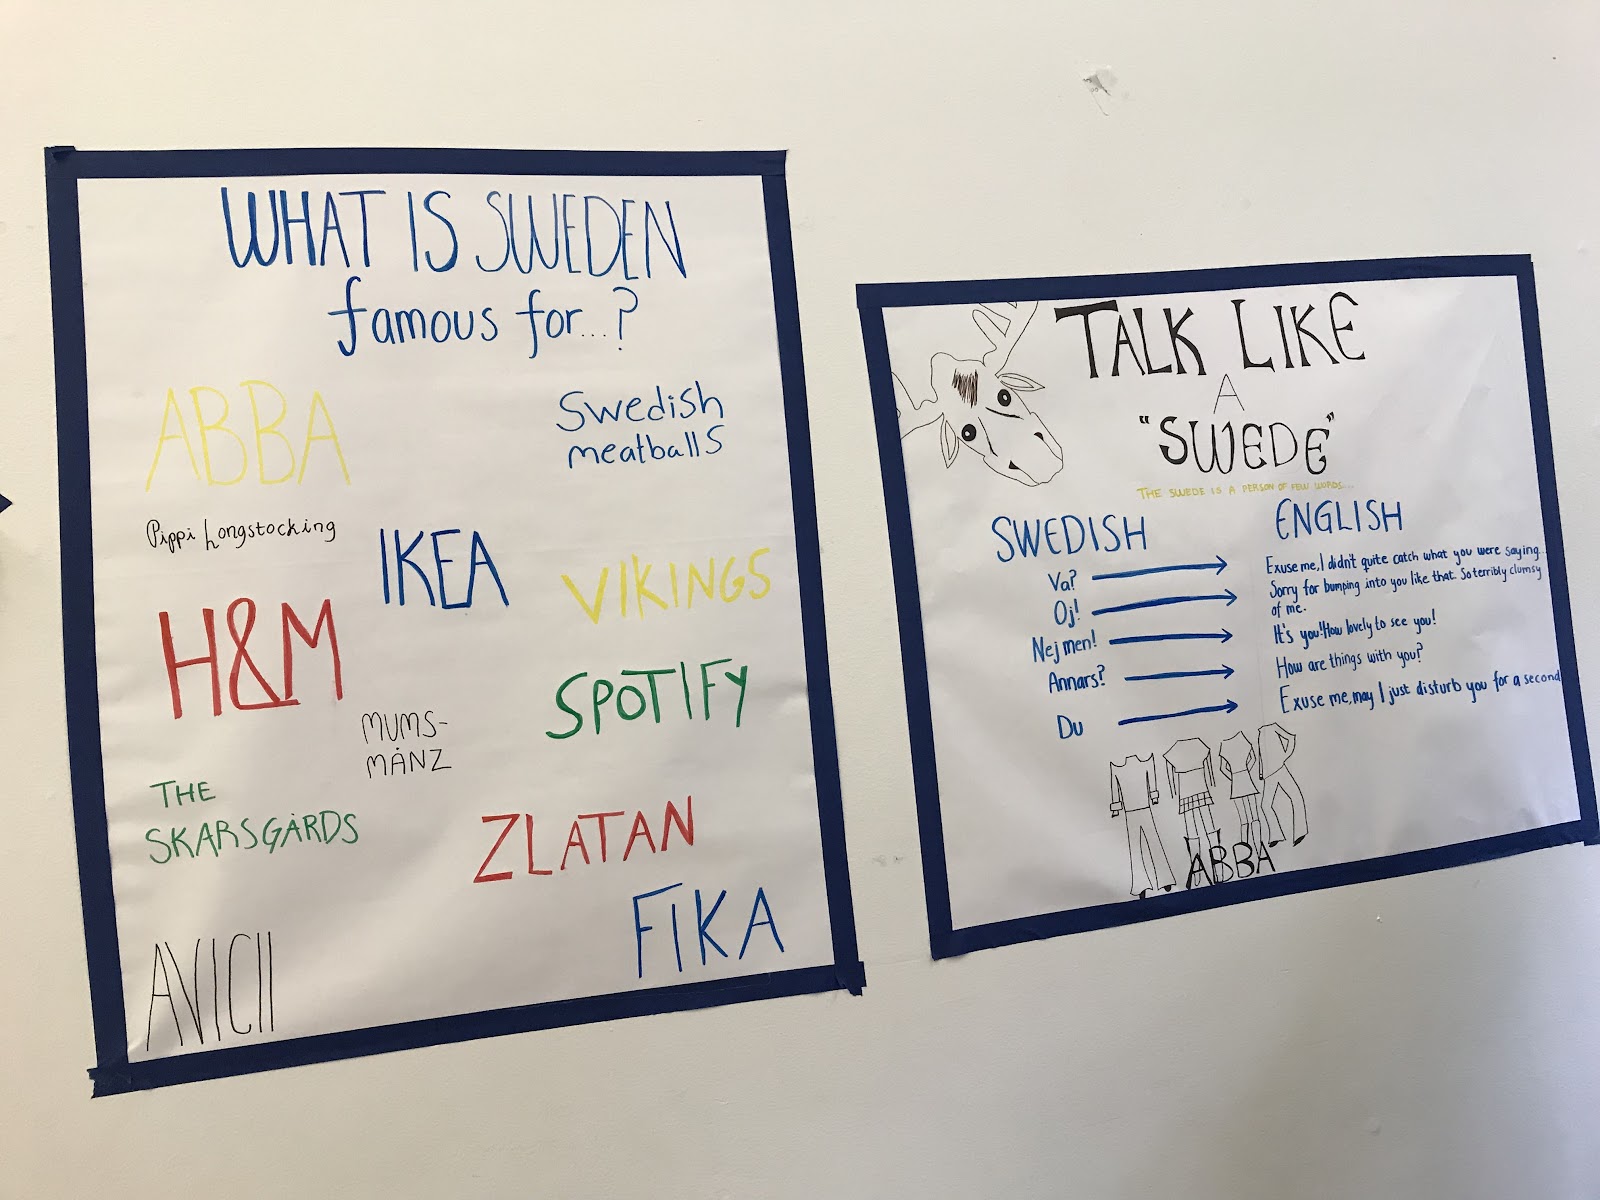 WHAT IS SWEDEN
famous for...?
ABBA
Swedish
meatballs
Pippi Longstocking
IKEA
VIKINGS
H&M
SPOTIFY
MUMS-
MÅNZ
THE
SKARSGÅRDS
ZLATAN
FIKA
AVICII
TALK LIKE
A
"SWEDE"
THE SWEDE IS A PERSON OF FEW WORDS...
SWEDISH
ENGLISH
Va?
Exuse me, I didn't quite catch what you were saying...
Oj!
Sorry for bumping into you like that. So terribly clumsy
of me.
Nej men!
It's you! How lovely to see you!
Annars?
How are things with you?
Du
Exuse me, may I just disturb you for a second
ABBA